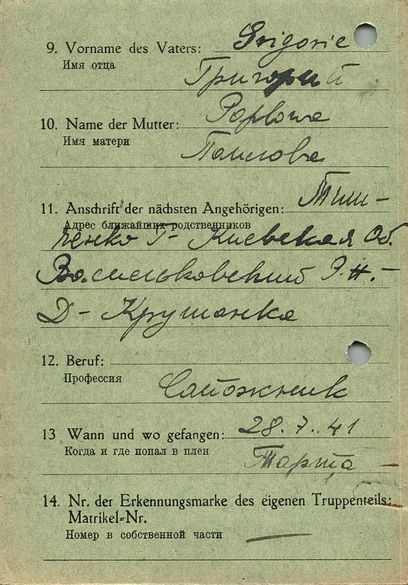 9. Vorname des Vaters: Grigorie
Имя отца Григорий
10. Name der Mutter: Paplowa
Имя матери Паплова
11. Anschrift der nächsten Angehörigen: Тим-
Адрес ближайших родственников
ченко Г- Киевская Об.
Васильковский Р.Н.-
Д- Крушанка
12. Beruf:
Профессия Сапожник
13 Wann und wo gefangen: 28.7.41
Когда и где попал в плен
14. Nr. der Erkennungsmarke des eigenen Truppenteils:
Matrikel-Nr.
Номер в собственной части —